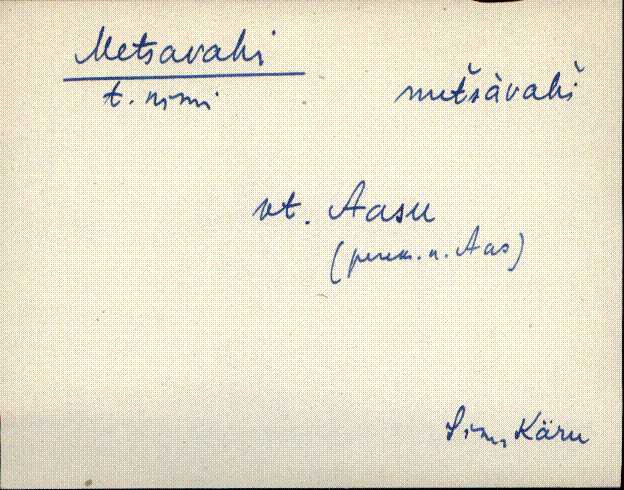 Metsavahi
t. nimi
metsavahi
vt. Aasu
(perek. n. Aas)
Sim, Käru